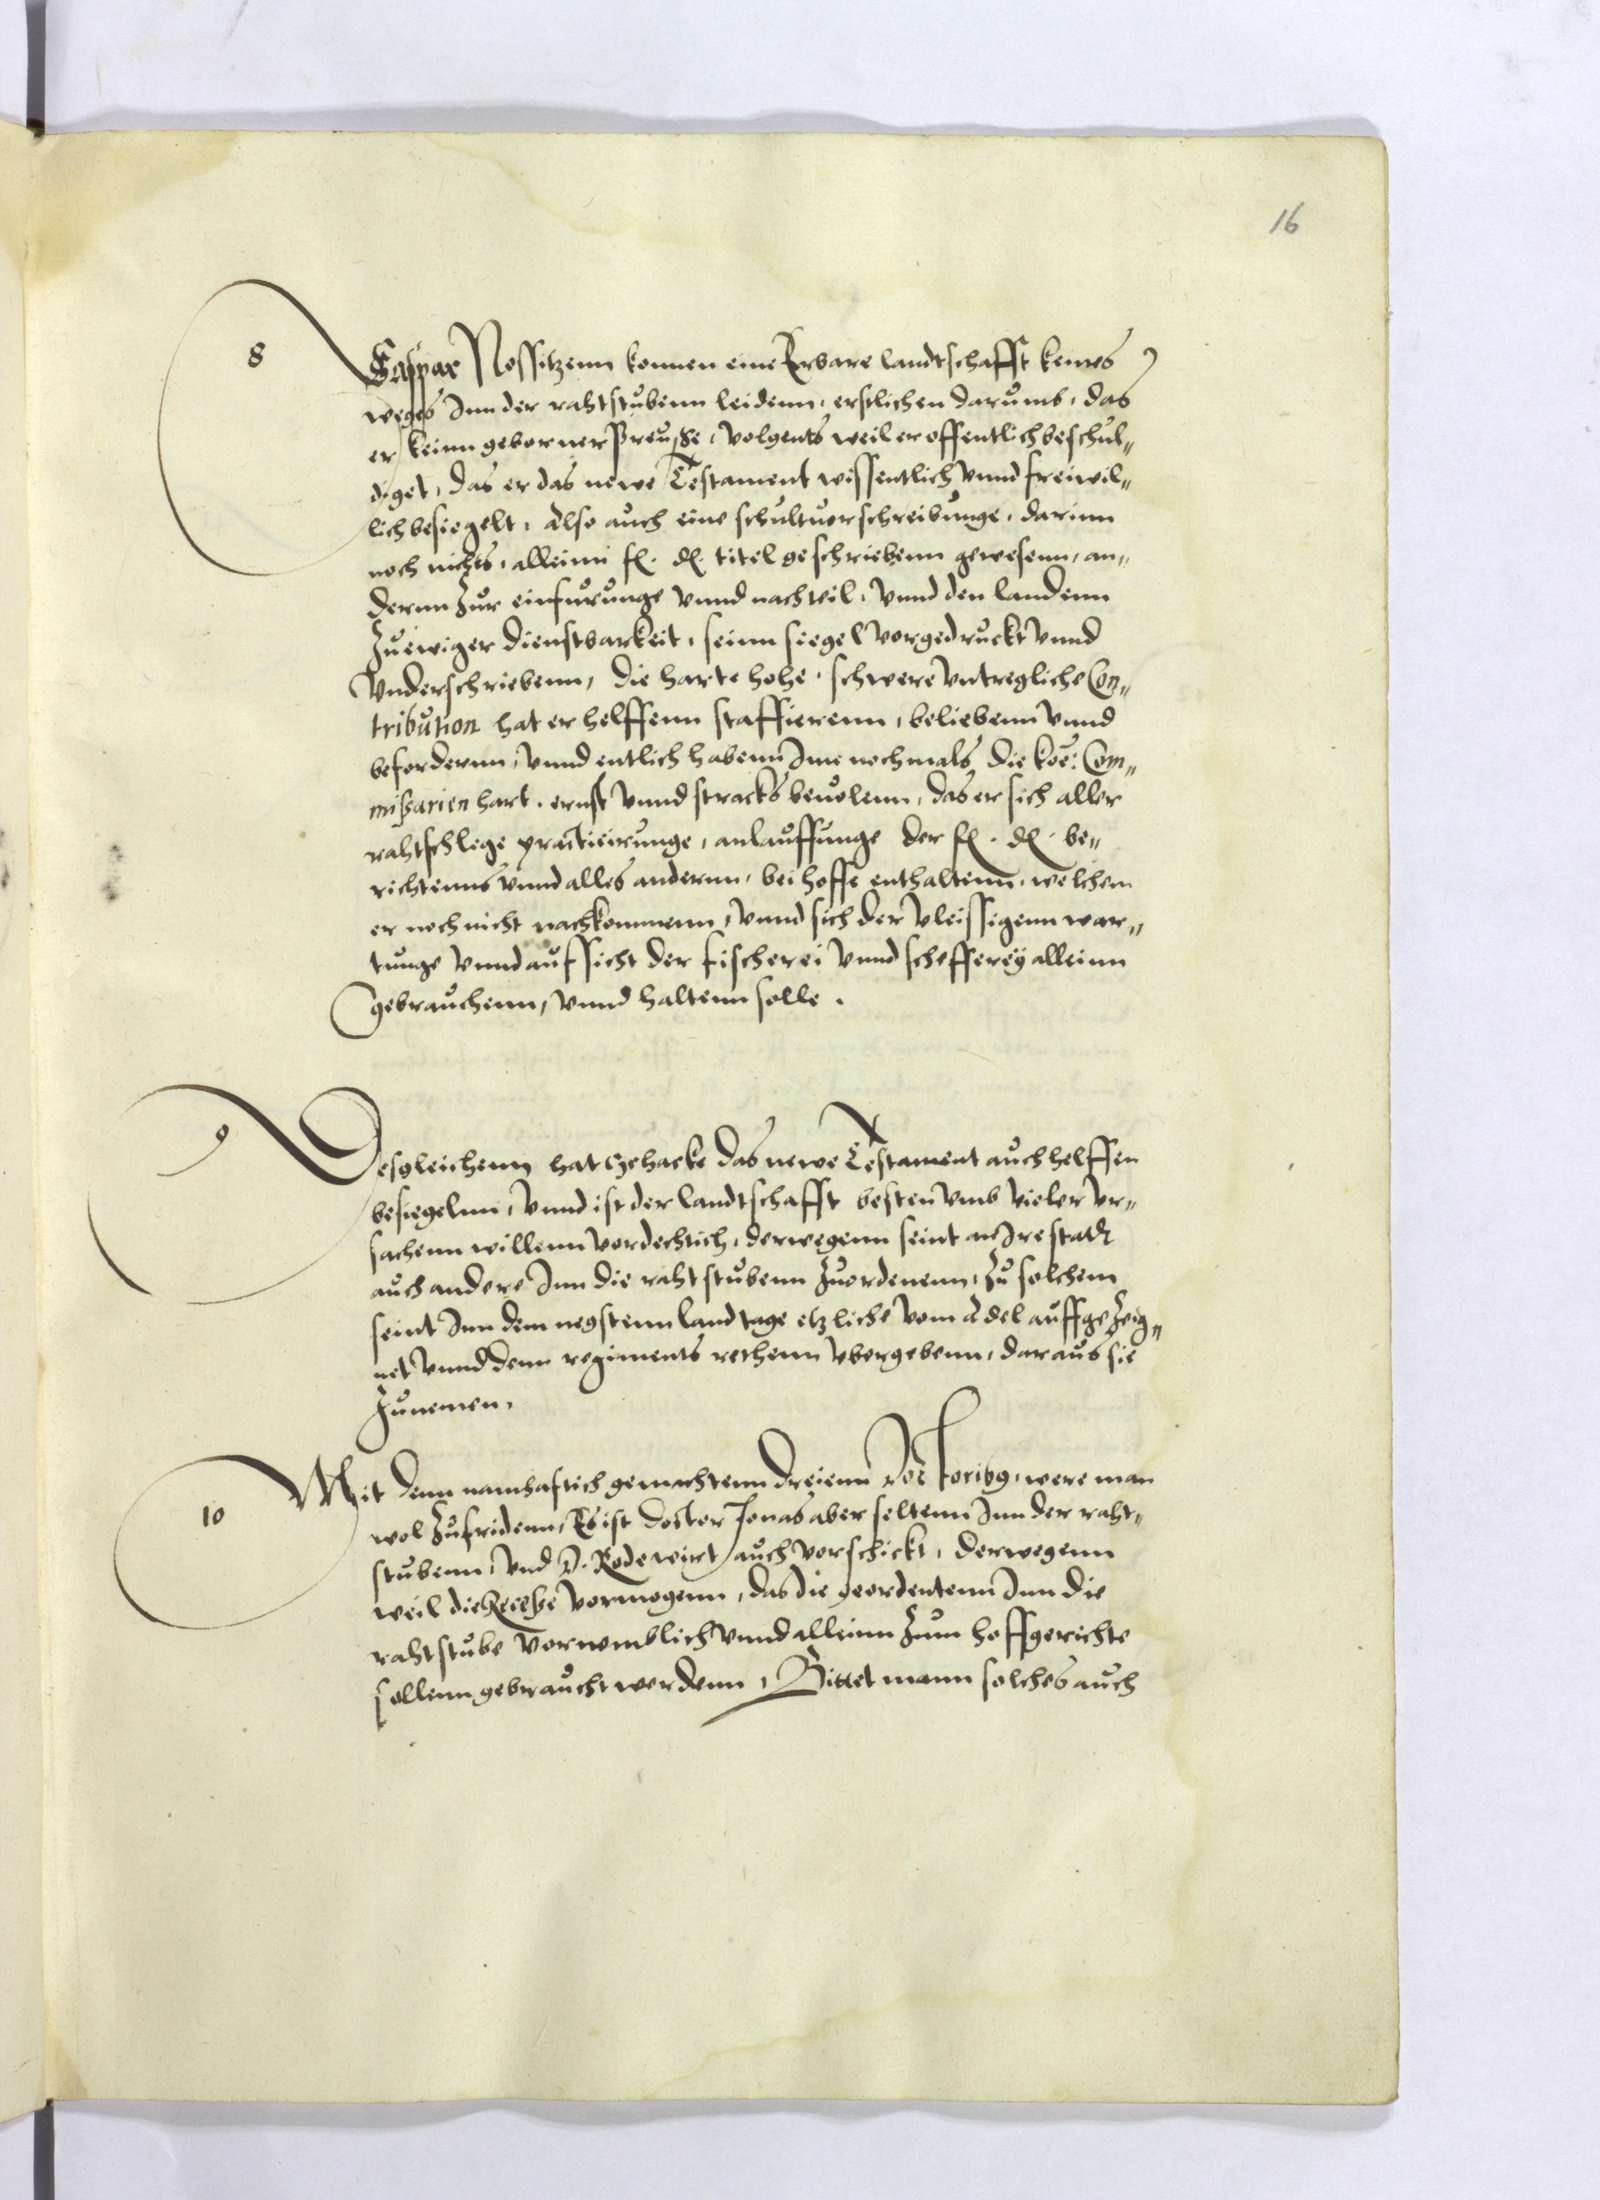 16
8
Caspar Nostitzenn konnen eine Erbare landtschafft keines
weges Inn der rahtstubenn leidenn, erstlichen darumb, das
er keinn geborner Preusse, volgents weil er offentlich beschul„
diget, das er das newe Testament wissentlich vnnd freiwil„
lich besiegelt, Also auch eine schultvorschreibunge, darinn
noch nichts, alleinn f. d. titel geschriebenn gewesenn, an„
dernn zur einfurunge vnnd nachteil, vnnd den landenn
zu ewiger dienstbarkeit, seinn siegel vorgedruckt vnnd
vnderschriebenn, die harte hohe, schwere vntregliche Con„
tribution hat er helffenn staffierenn, beliebenn vnnd
befordernn, vnnd entlich habenn Ime nochmals die koe: Com„
mißarien hart, ernst vnnd stracks beuolenn, das er sich aller
rahtschlege practicirunge, anlauffunge der f. d. be„
richtenns vnnd alles andernn, bei hoffe enthaltenn, welchem
er noch nicht nachkommenn, vnnd sich der vleissigenn war„
tunge vnnd aufsicht der fischerei vnnd schefferey alleinn
gebrauchenn, vnnd haltenn solle.
9
Desgleichenn hat Gehacke das newe Testament auch helffen
besiegelnn, vnnd ist der landtschafft bestenn vmb vieler vr„
sachenn willenn vordechtich, derwegenn seint an Ire stadt
auch andere Inn die rahtstubenn zuordenenn, zu solchem
seint Inn dem negstenn landtage etzliche vom Adel auffgezeig„
net vnnd denn regiments rethenn vbergebenn, daraus sie
zunemen.
10
Mit denn namhaftich gemachtenn dreienn Doctoribus, were man
wol zufridenn, Es ist doctor Jonas aber seltenn Inn der raht„
stubenn, vnd D. Rode wirt auch vorschickt, derwegenn
weil die Receße vormogenn, das die geordentenn Inn die
rahtstube vornemblich vnnd alleinn zum hoffgerichte
sollenn gebraucht werdenn, Bittet mann solches auch